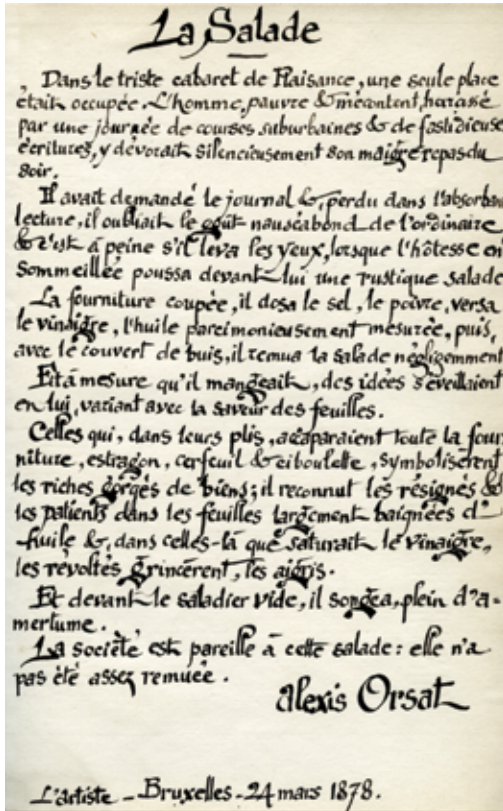 La Salade
Dans le triste cabaret de Plaisance, une seule place
était occupée. L'homme, pauvre & mécontent, harassé
par une journée de courses suburbaines & de fastidieuse
écritures, y dévorait silencieusement son maigre repas du
soir.
Il avait demandé le journal &, perdu dans l'absorban
lecture, il oubliait le goût nauséabond de l'ordinaire
& c'est à peine s'il leva les yeux, lorsque l'hôtesse en
sommeillée poussa devant lui une rustique salade
La fourniture coupée, il dosa le sel, le poivre, versa
le vinaigre, l'huile parcimonieusement mesurée, puis,
avec le couvert de buis, il remua la salade négligemment
Et à mesure qu'il mangeait, des idées s'éveillaient
en lui, variant avec la saveur des feuilles.
Celles qui, dans leurs plis, accaparaient toute la four
niture, estragon, cerfeuil & ciboulette, symbolisèrent
les riches gorgés de biens; il reconnut les résignés &
les patients dans les feuilles largement baignées d'
huile &, dans celles-là que saturait le vinaigre,
les révoltés grincèrent, les aigris.
Et devant le saladier vide, il songea, plein d'a-
mertume.
La société est pareille à cette salade: elle n'a
pas été assez remuée.
Alexis Orsat
L'artiste - Bruxelles - 24 mars 1878.